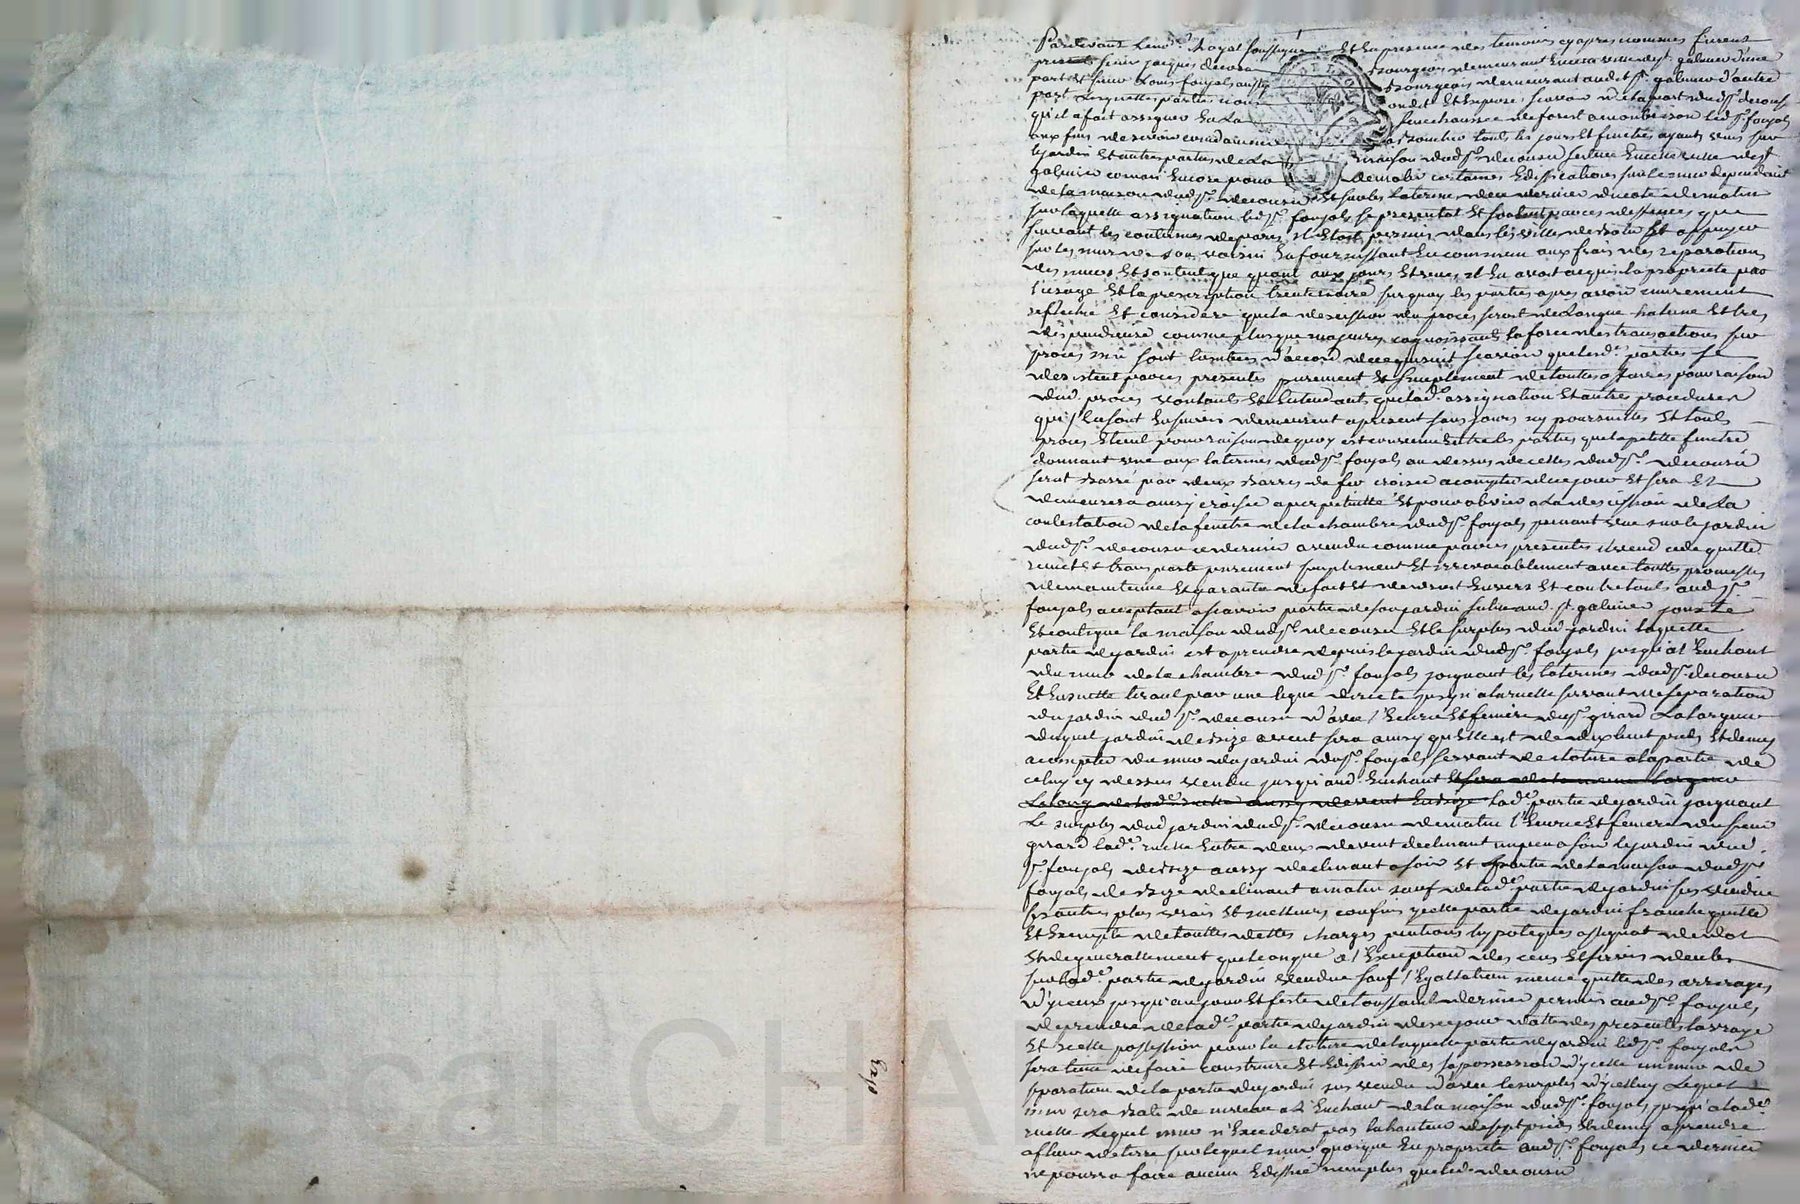 Pardevant le no.re Royal soussigne Et En presence des temoins cy apres nommes furent
presents sieur jacques decousu Bourgeois demeurant En cette ville de s.t galmier d'une
part Et sieur Louis foujols aussy Bourgeois demeurant aud.t s.t galmier d'autre
part Lesquelles parties nous ont dit Et Expose scavoir de la part dud.s.r decousu
qu'il a fait assigner En La senechaussée de forest a montbrison led.s.r foujols
aux fins de se voir condamner a Boucher touts les jours Et fenetres ayants veue sur
le jardin Et autres parties de La maison dud.s.r decousu scituée En cette ville de s.t
galmier comm' Encore pour demolir certaines Ediffications sur le mur dependant
de la maison dud.s.r decousu Et sur les laterines de ce dernier du coté de matin
sur laquelle assignation led.s.r foujols se presentat Et soutint par ces deffences que
suivant les coutumes de paris il Etoit permis dans les ville de Batir Et appuyer
sur les murs de son voisin En fournissant En commun aux frais des reparations
des murs Et soutint que quant aux jours Et veues il En avoit acquis la propriete par
l'usage Et la prescription trentenaire surquoy les parties apres avoir murement
reflechie Et considere que la decission du procès seroit de Longue haleine Et tres
dispendieuse comme plus que majeures cognoissants la force des transactions sur
procès mu sont tombées d'accord de ce qui suit scavoir que lesd.es parties se
desistent par ces presentes purement Et simplement de toutes affaires pour raison
dud. procès voulants Et Entendants que lad.e assignation Et autres procedures
qui s'En sont Ensuivies demeurent a present sans jours ny poursuittes Et touts
procès Eteint pour raison de quoy est convenu Entre les parties que la petitte fenetre
donnant veue aux laterines dud.s.r foujols au dessus de celles dud.s.r decousu
serat Barré par deux Barres de fer croisée a compter de ce jour Et sera Et
demeurera ainsy croisée a perpetuitté Et pour obvier a La decission de La
contestation de la fenetre de la chambre dud.s.r foujols prenant veue sur le jardin
dud.s.r decousu ce dernier a vendu comme par ces presentes il vend cede quitte
remet Et transporte purement simplement Et irrevocablement avec touttes promesses
de maintenir Et garantir de fait Et de droit Envers Et contre touts aud.s.r
foujols acceptant a scavoir partie de son jardin scitue aud. s.t galmier jouxte
Et contigue la maison dud.s.r decousu Et le surplus dud. jardin laquelle
partie de jardin est a prendre depuis le jardin dud.s.r foujols jusqu'a l'Enchant
du mur de la chambre dud.s.r foujols joignant les laterines dud.s.r decousu
Et Ensuitte tirant par une ligne directe jusqu'a la ruelle servant de separation
du jardin dud.s.r decousu d'avec l'Ecurie Et feniere du s.r girard La largeur
duquel jardin de Bize a vent sera ainsy qu'Elle est de dix huit pieds Et demy
a compter du mur du jardin dud.s.r foujols servant de cloture a la partie de
celuy cy dessus vendu jusqu'aud. Enchant Et sera de la meme largeur
Le long de lad.e ruelle aussy de vent En Bize lad.e partie de jardin joignant
Le surplus dud. jardin dud.s.r decousu de matin l'Ecurie Et feniere du sieur
girard lad.e ruelle Entre deux de vent declinant un peu a soir le jardin dud.
s.r foujols de Bize aussy declinant a soir Et partie de la maison dud.s.r
foujols de Bize declinant a matin sauf de lad.e partie de jardin sus vendue
ses autres plus vrais Et meilleurs confins ycelle partie de jardin franche quitte
Et Exempte de touttes dettes charges pentions hypoteques assignat de dot
Et de generallement quelconque a l'Exception des cens Et servis deubs
sur lad.e partie de jardin vendue sauf l'Egallation meme quitte des arrerages
d'yceux jusqu'au jour Et feste de toussaint dernier permis aud.s.r foujols
de prendre de lad.e partie de jardin des ce jour datte des presentes la vraye
Et reelle possession pour la cloture de laquelle partie de jardin led.s.r foujols
sera tenu de faire construire Et Edifier des sa possession d'ycelle un mur de
separation de la partie de jardin sus vendu d'avec le surplus d'ycelluy Lequel
mur sera Bati de niveau a L'Enchant de la maison dud.s.r foujols jusqu'a lad.e
ruelle Lequel mur n'Excederat pas la hauteur de sept pieds Et demy a prendre
a fleur de terre sur lequel mur quoique En propriete aud.s.r foujols ce dernier
ne pourra faire aucun Edifice non plus que led. decousu
Exp